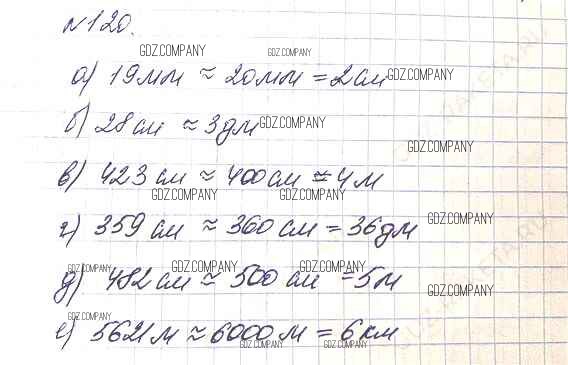 №120.
GDZ.COMPANY GDZ.COMPANY
а) 19мм ≈ 20мм = 2см GDZ.COMPANY
б) 28см ≈ 3дм GDZ.COMPANY
GDZ.COMPANY
в) 423 см ≈ 400см = 4м
GDZ.COMPANY GDZ.COMPANY
г) 359 см ≈ 360 см = 36дм GDZ.COMPANY
GDZ.COMPANY GDZ.COMPANY GDZ.COMPANY
д) 482см ≈ 500 см = 5м
GDZ.COMPANY
GDZ.COMPANY
е) 5621м ≈ 6000м = 6км
GDZ.COMPANY GDZ.COMPANY